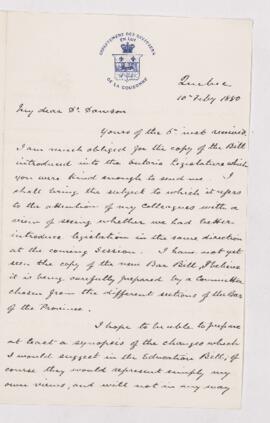 DEPARTEMENT DES OFFICIERS
EN LOI
DE LA COURONNE
Quebec
10th Feby 1880
My dear Dr. Dawson
Yours of the 5th inst received.
I am much obliged for the copy of the Bill
introduced into the Ontario Legislature which
you were kind enough to send me. I
shall bring the subject to which it refers
to the attention of my colleagues with a
view of seeing whether we had better
introduce legislation in the same direction
at the coming Session. I have not yet
seen the copy of the new Bar Bill, I believe
it is being carefully prepared by a Committee
chosen from the different sections of the Bar
of the Province.
I hope to be able to prepare
at least a synopsis of the changes which
I would suggest in the Education Bill, of
course they would represent simply my
own views, and will not in any way